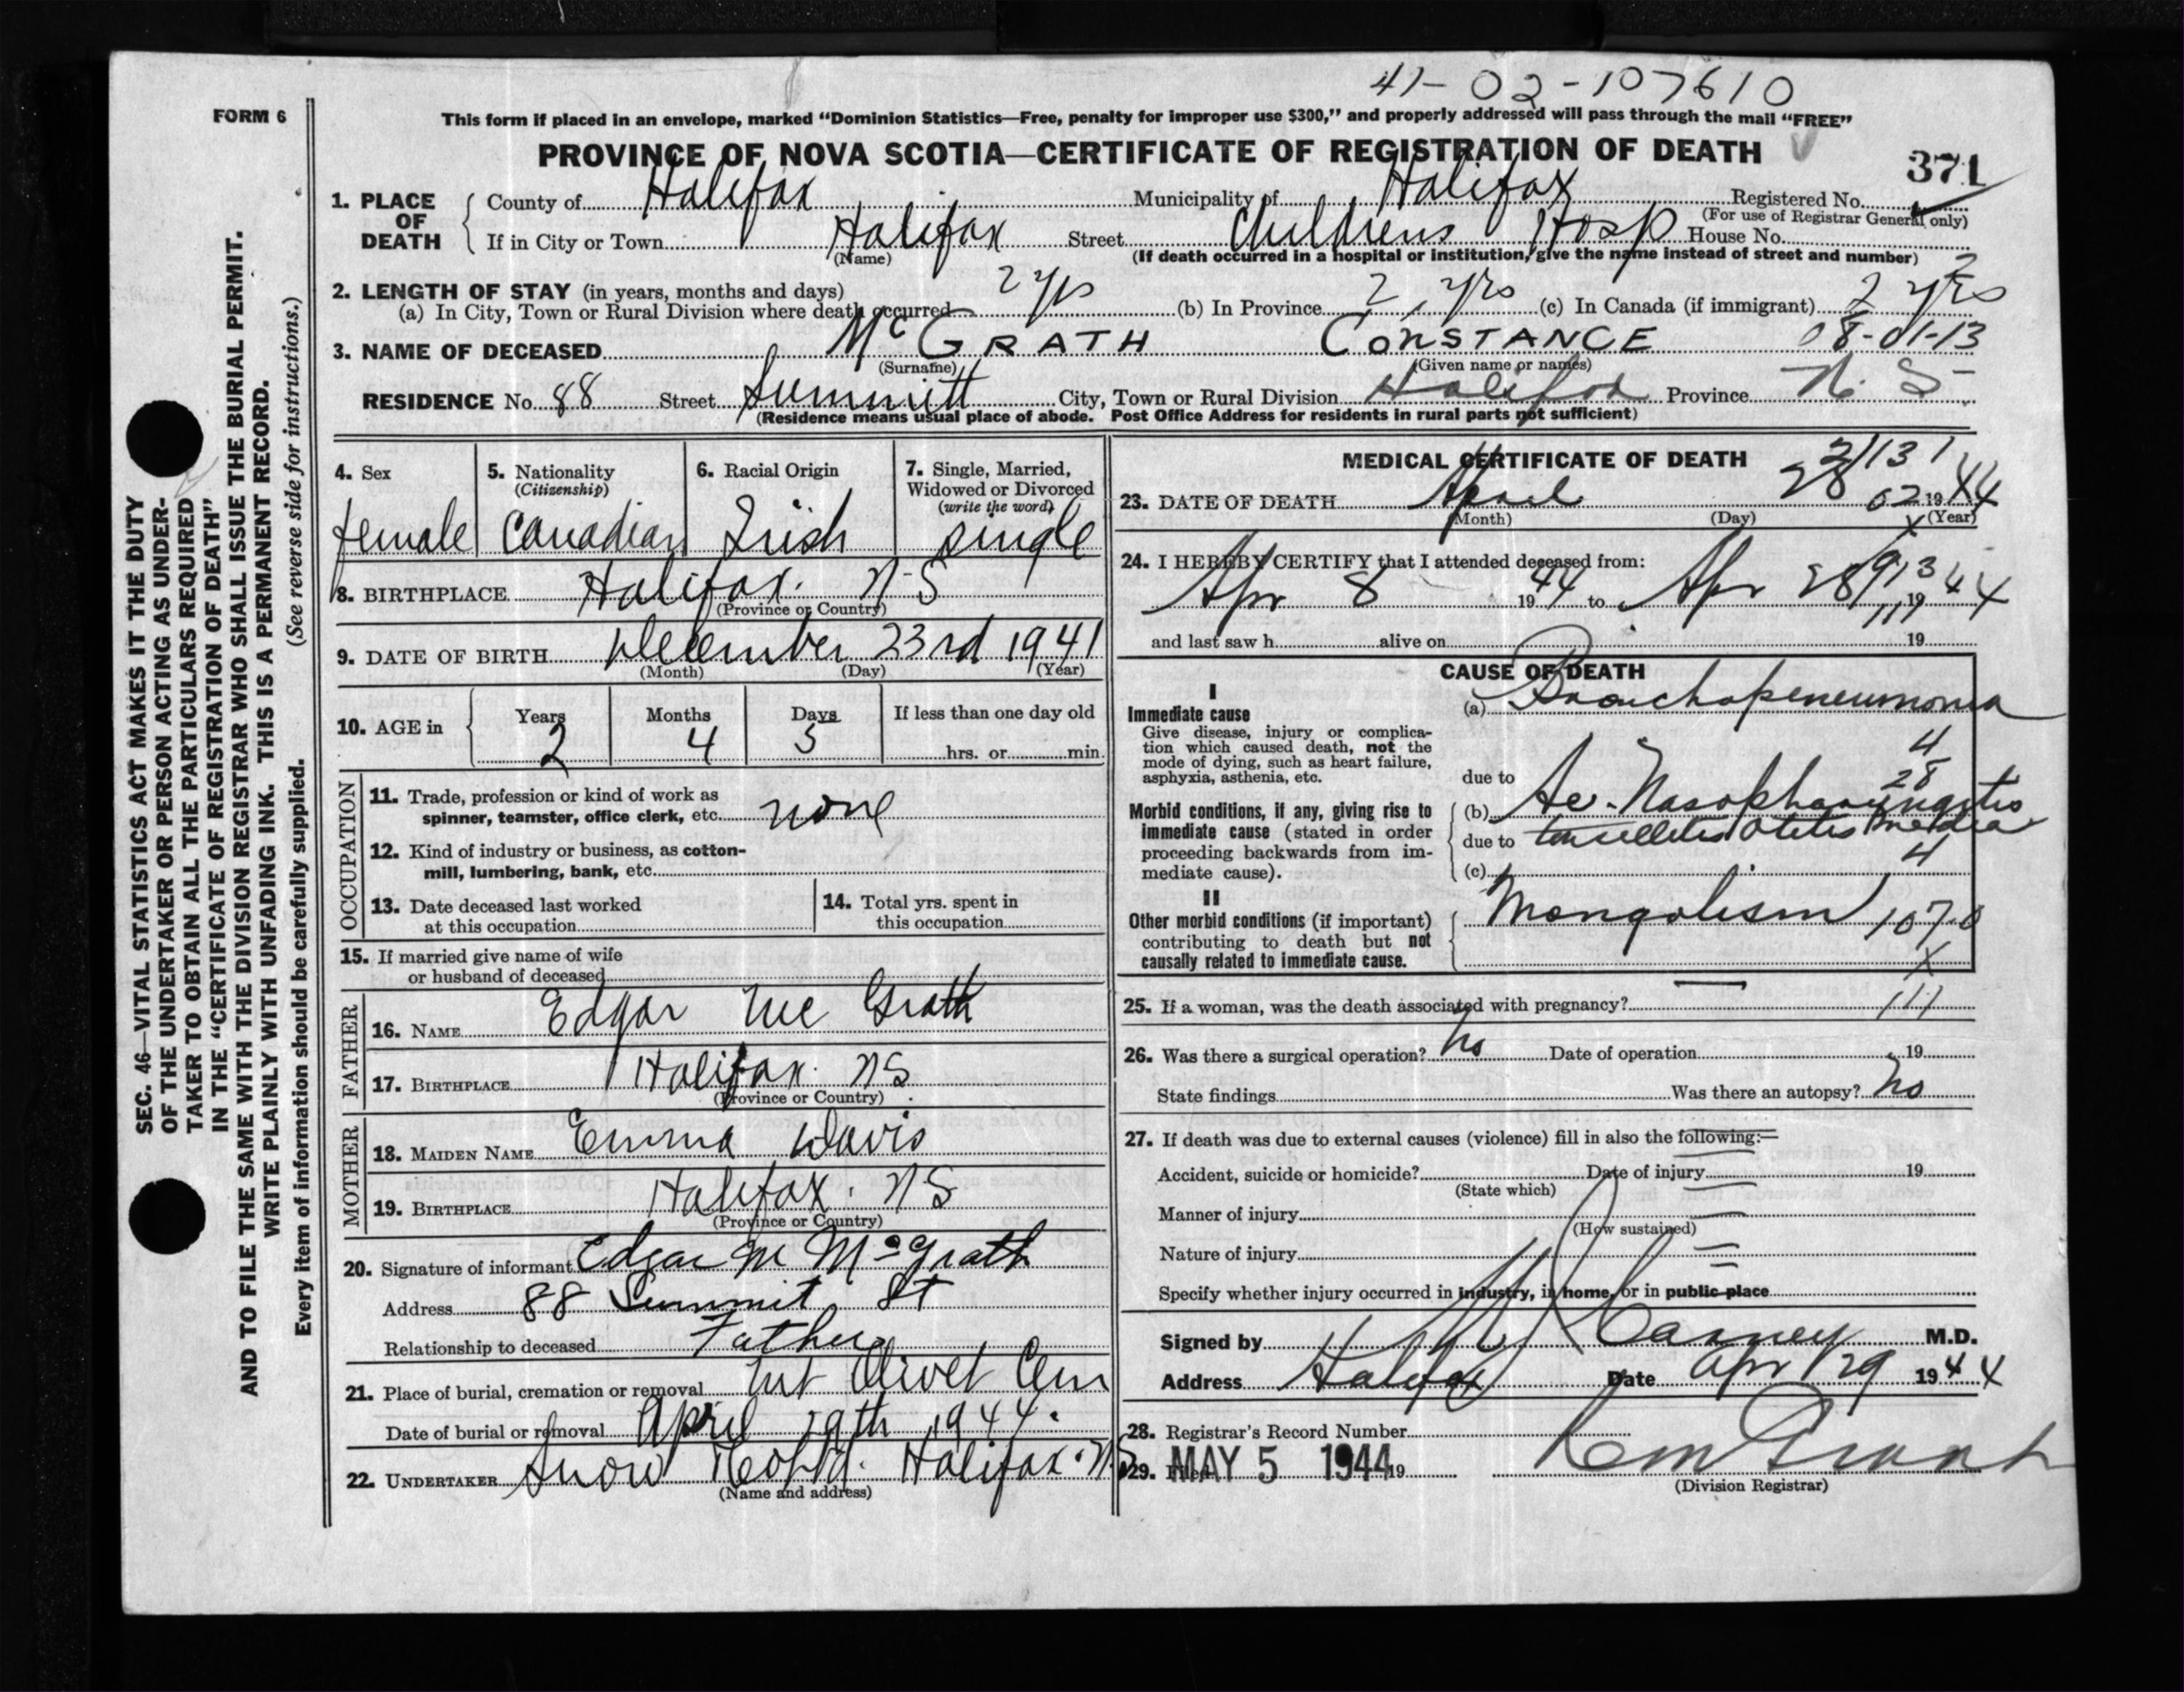 41-02-107610
FORM 6
This form if placed in an envelope, marked “Dominion Statistics—Free, penalty for improper use $300,” and properly addressed will pass through the mail “FREE”
PROVINCE OF NOVA SCOTIA—CERTIFICATE OF REGISTRATION OF DEATH
371
1. PLACE OF DEATH County of Halifax Municipality of Halifax Registered No.
(For use of Registrar General only)
If in City or Town Halifax Street Childrens Hosp House No.
(Name) (If death occurred in a hospital or institution, give the name instead of street and number)
2. LENGTH OF STAY (in years, months and days)
(a) In City, Town or Rural Division where death occurred 2 yrs (b) In Province 2 yrs (c) In Canada (if immigrant) 2 yrs
3. NAME OF DECEASED McGRATH CONSTANCE 08-01-13
(Surname) (Given name or names)
RESIDENCE No. 88 Street Summitt City, Town or Rural Division Halifax Province N. S.
(Residence means usual place of abode. Post Office Address for residents in rural parts not sufficient)
SEC. 46—VITAL STATISTICS ACT MAKES IT THE DUTY
OF THE UNDERTAKER OR PERSON ACTING AS UNDER-
TAKER TO OBTAIN ALL THE PARTICULARS REQUIRED
IN THE “CERTIFICATE OF REGISTRATION OF DEATH”
AND TO FILE THE SAME WITH THE DIVISION REGISTRAR WHO SHALL ISSUE THE BURIAL PERMIT.
WRITE PLAINLY WITH UNFADING INK. THIS IS A PERMANENT RECORD.
Every item of information should be carefully supplied. (See reverse side for instructions.)
4. Sex female
5. Nationality (Citizenship) Canadian
6. Racial Origin Irish
7. Single, Married, Widowed or Divorced (write the word) single
8. BIRTHPLACE Halifax. N-S
(Province or Country)
9. DATE OF BIRTH December 23rd 1941
(Month) (Day) (Year)
10. AGE in Years 2 Months 4 Days 5 If less than one day old
hrs. or min.
OCCUPATION
11. Trade, profession or kind of work as
spinner, teamster, office clerk, etc. none
12. Kind of industry or business, as cotton-
mill, lumbering, bank, etc.
13. Date deceased last worked
at this occupation
14. Total yrs. spent in
this occupation
15. If married give name of wife
or husband of deceased
FATHER
16. NAME Edgar Mc Grath
17. BIRTHPLACE Halifax. NS
(Province or Country)
MOTHER
18. MAIDEN NAME Emma Davis
19. BIRTHPLACE Halifax. NS
(Province or Country)
20. Signature of informant Edgar M McGrath
Address 88 Summit St
Relationship to deceased Father
21. Place of burial, cremation or removal Mt Olivet Cem
Date of burial or removal April 29th 1944.
22. UNDERTAKER Snow & Co Ltd. Halifax. N.S
(Name and address)
MEDICAL CERTIFICATE OF DEATH
23. DATE OF DEATH April 28 1944
(Month) (Day) (Year)
24. I HEREBY CERTIFY that I attended deceased from:
Apr 8 1944 to Apr 28 1944
and last saw h alive on 19
CAUSE OF DEATH
I
Immediate cause
Give disease, injury or complica-
tion which caused death, not the
mode of dying, such as heart failure,
asphyxia, asthenia, etc.
(a) Bronchopeneumonia
due to
Morbid conditions, if any, giving rise to
immediate cause (stated in order
proceeding backwards from im-
mediate cause).
(b) Ac. Nasopharyngitis
due to tonsillitis Otitis media
(c)
II
Other morbid conditions (if important)
contributing to death but not
causally related to immediate cause.
Mongolism 107.0
25. If a woman, was the death associated with pregnancy? —
26. Was there a surgical operation? No Date of operation 19
State findings Was there an autopsy? No
27. If death was due to external causes (violence) fill in also the following:—
Accident, suicide or homicide? Date of injury 19
(State which)
Manner of injury
(How sustained)
Nature of injury
Specify whether injury occurred in industry, in home, or in public place
Signed by Carney M.D.
Address Halifax Date Apr 29 1944
28. Registrar’s Record Number
29. MAY 5 1944 19
(Division Registrar)